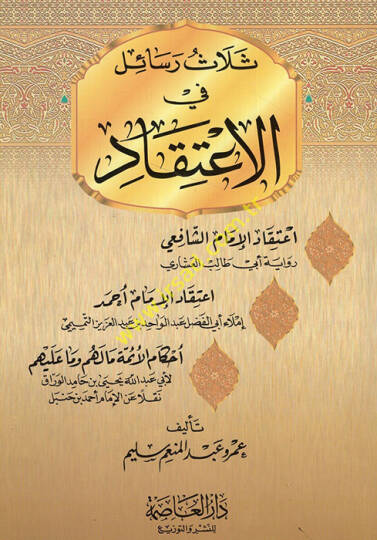 ثَلَاثُ رَسَائِل
فِي
الِاعْتِقَادِ
اعتقاد الإمام الشافعي
رواية أبي طالب العشاري
اعتقاد الإمام أحمد
إملاء أبي الفضل عبد الواحد بن عبد العزيز التميمي
أحكام الأئمة مالهم وما عليهم
لأبي عبد الله يحيى بن حامد الوراق
نقلا عن الإمام أحمد بن حنبل
تأليف
عمرو عبد المنعم سليم
دار العاصمة
للنشر والتوزيع